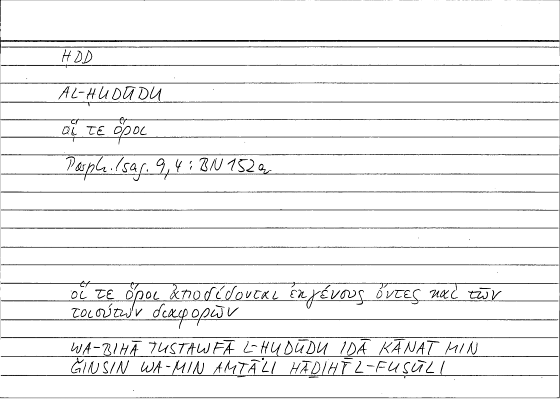 ḤDD
AL-ḤUDŪDU
οἵ τε ὅροι
Porph. Isag. 9,4 : BN 152a
οἵ τε ὅροι ἀποδίδονται ἐκ γένους ὄντες καὶ τῶν
τοιούτων διαφορῶν
WA-BIHĀ TUSTAWFĀ L-ḤUDŪDU IḎĀ KĀNAT MIN
ǦINSIN WA-MIN AMṮĀLI HĀḎIHĪ L-FUṢŪLI